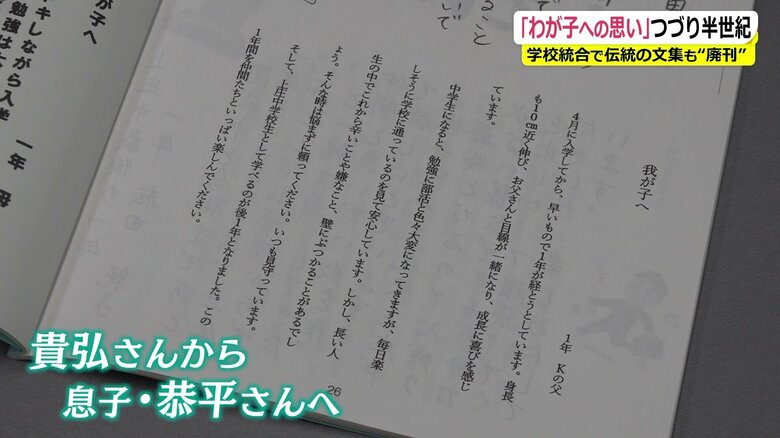 「わが子への思い」つづり半世紀
学校統合で伝統の文集も“廃刊”
我が子へ
1年 Kの父
4月に入学してから、早いもので1年が経とうとしています。身長
も10㎝近く伸び、お父さんと目線が一緒になり、成長に喜びを感じ
ています。
中学生になると、勉強に部活と色々大変になってきますが、毎日楽
しそうに学校に通っているのを見て安心しています。しかし、長い人
生の中でこれから辛いことや嫌なこと、壁にぶつかることがあるでし
ょう。そんな時は悩まずに頼ってください。いつも見守っています。
そして、上庄中学校生として学べるのが後1年となりました。この
1年間を仲間たちといっぱい楽しんでください。
26
が子へ
一年 母
キしながら入学
勉強は大
田
ること
いて
貴弘さんから
息子・恭平さんへ